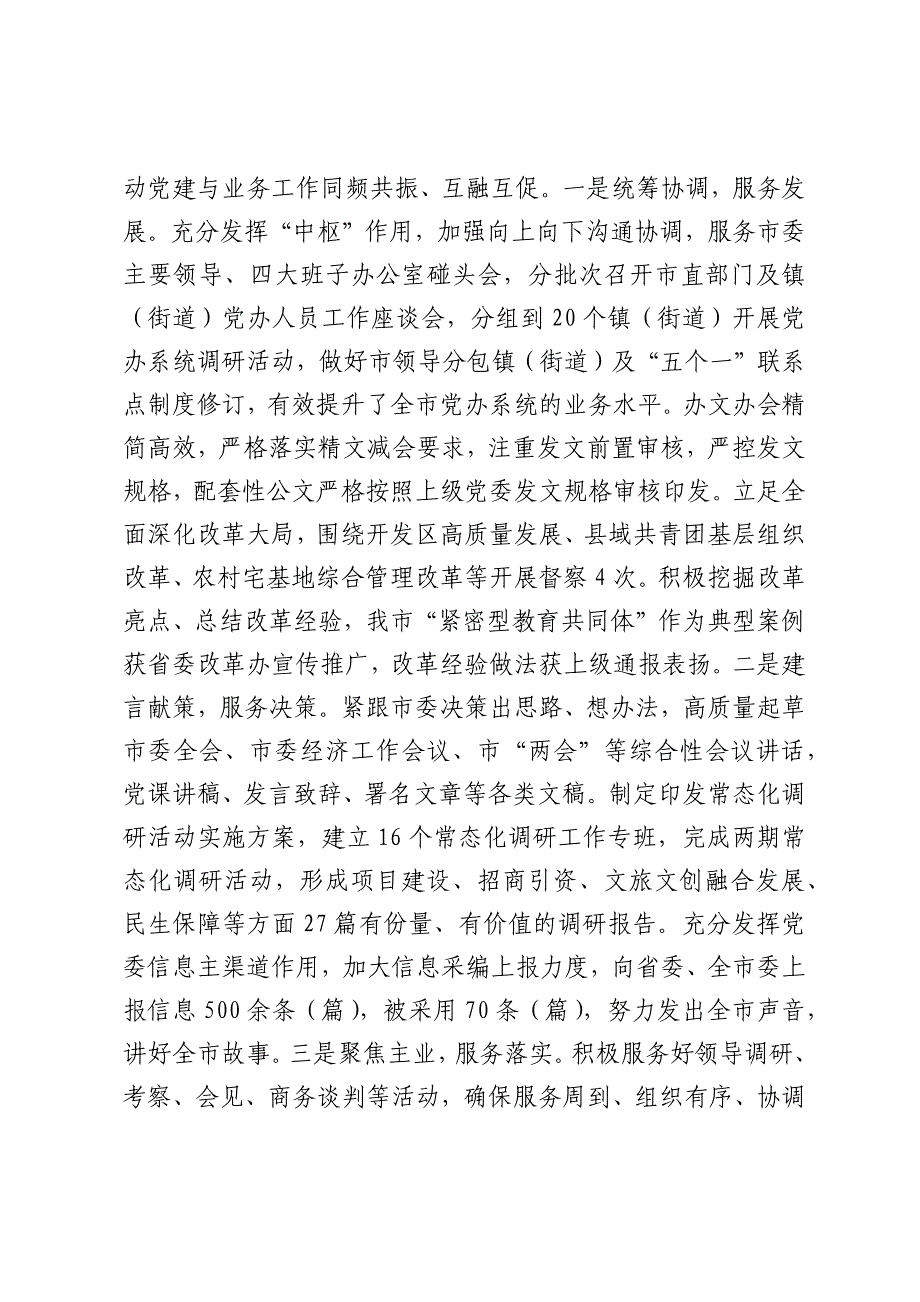 动党建与业务工作同频共振、互融互促。一是统筹协调，服务发
展。充分发挥“中枢”作用，加强向上向下沟通协调，服务市委
主要领导、四大班子办公室碰头会，分批次召开市直部门及镇
（街道）党办人员工作座谈会，分组到 20 个镇（街道）开展党
办系统调研活动，做好市领导分包镇（街道）及“五个一”联系
点制度修订，有效提升了全市党办系统的业务水平。办文办会精
简高效，严格落实精文减会要求，注重发文前置审核，严控发文
规格，配套性公文严格按照上级党委发文规格审核印发。立足全
面深化改革大局，围绕开发区高质量发展、县域共青团基层组织
改革、农村宅基地综合管理改革等开展督察 4 次。积极挖掘改革
亮点、总结改革经验，我市“紧密型教育共同体”作为典型案例
获省委改革办宣传推广，改革经验做法获上级通报表扬。二是建
言献策，服务决策。紧跟市委决策出思路、想办法，高质量起草
市委全会、市委经济工作会议、市“两会”等综合性会议讲话，
党课讲稿、发言致辞、署名文章等各类文稿。制定印发常态化调
研活动实施方案，建立 16 个常态化调研工作专班，完成两期常
态化调研活动，形成项目建设、招商引资、文旅文创融合发展、
民生保障等方面 27 篇有份量、有价值的调研报告。充分发挥党
委信息主渠道作用，加大信息采编上报力度，向省委、全市委上
报信息 500 余条（篇），被采用 70 条（篇），努力发出全市声音，
讲好全市故事。三是聚焦主业，服务落实。积极服务好领导调研、
考察、会见、商务谈判等活动，确保服务周到、组织有序、协调